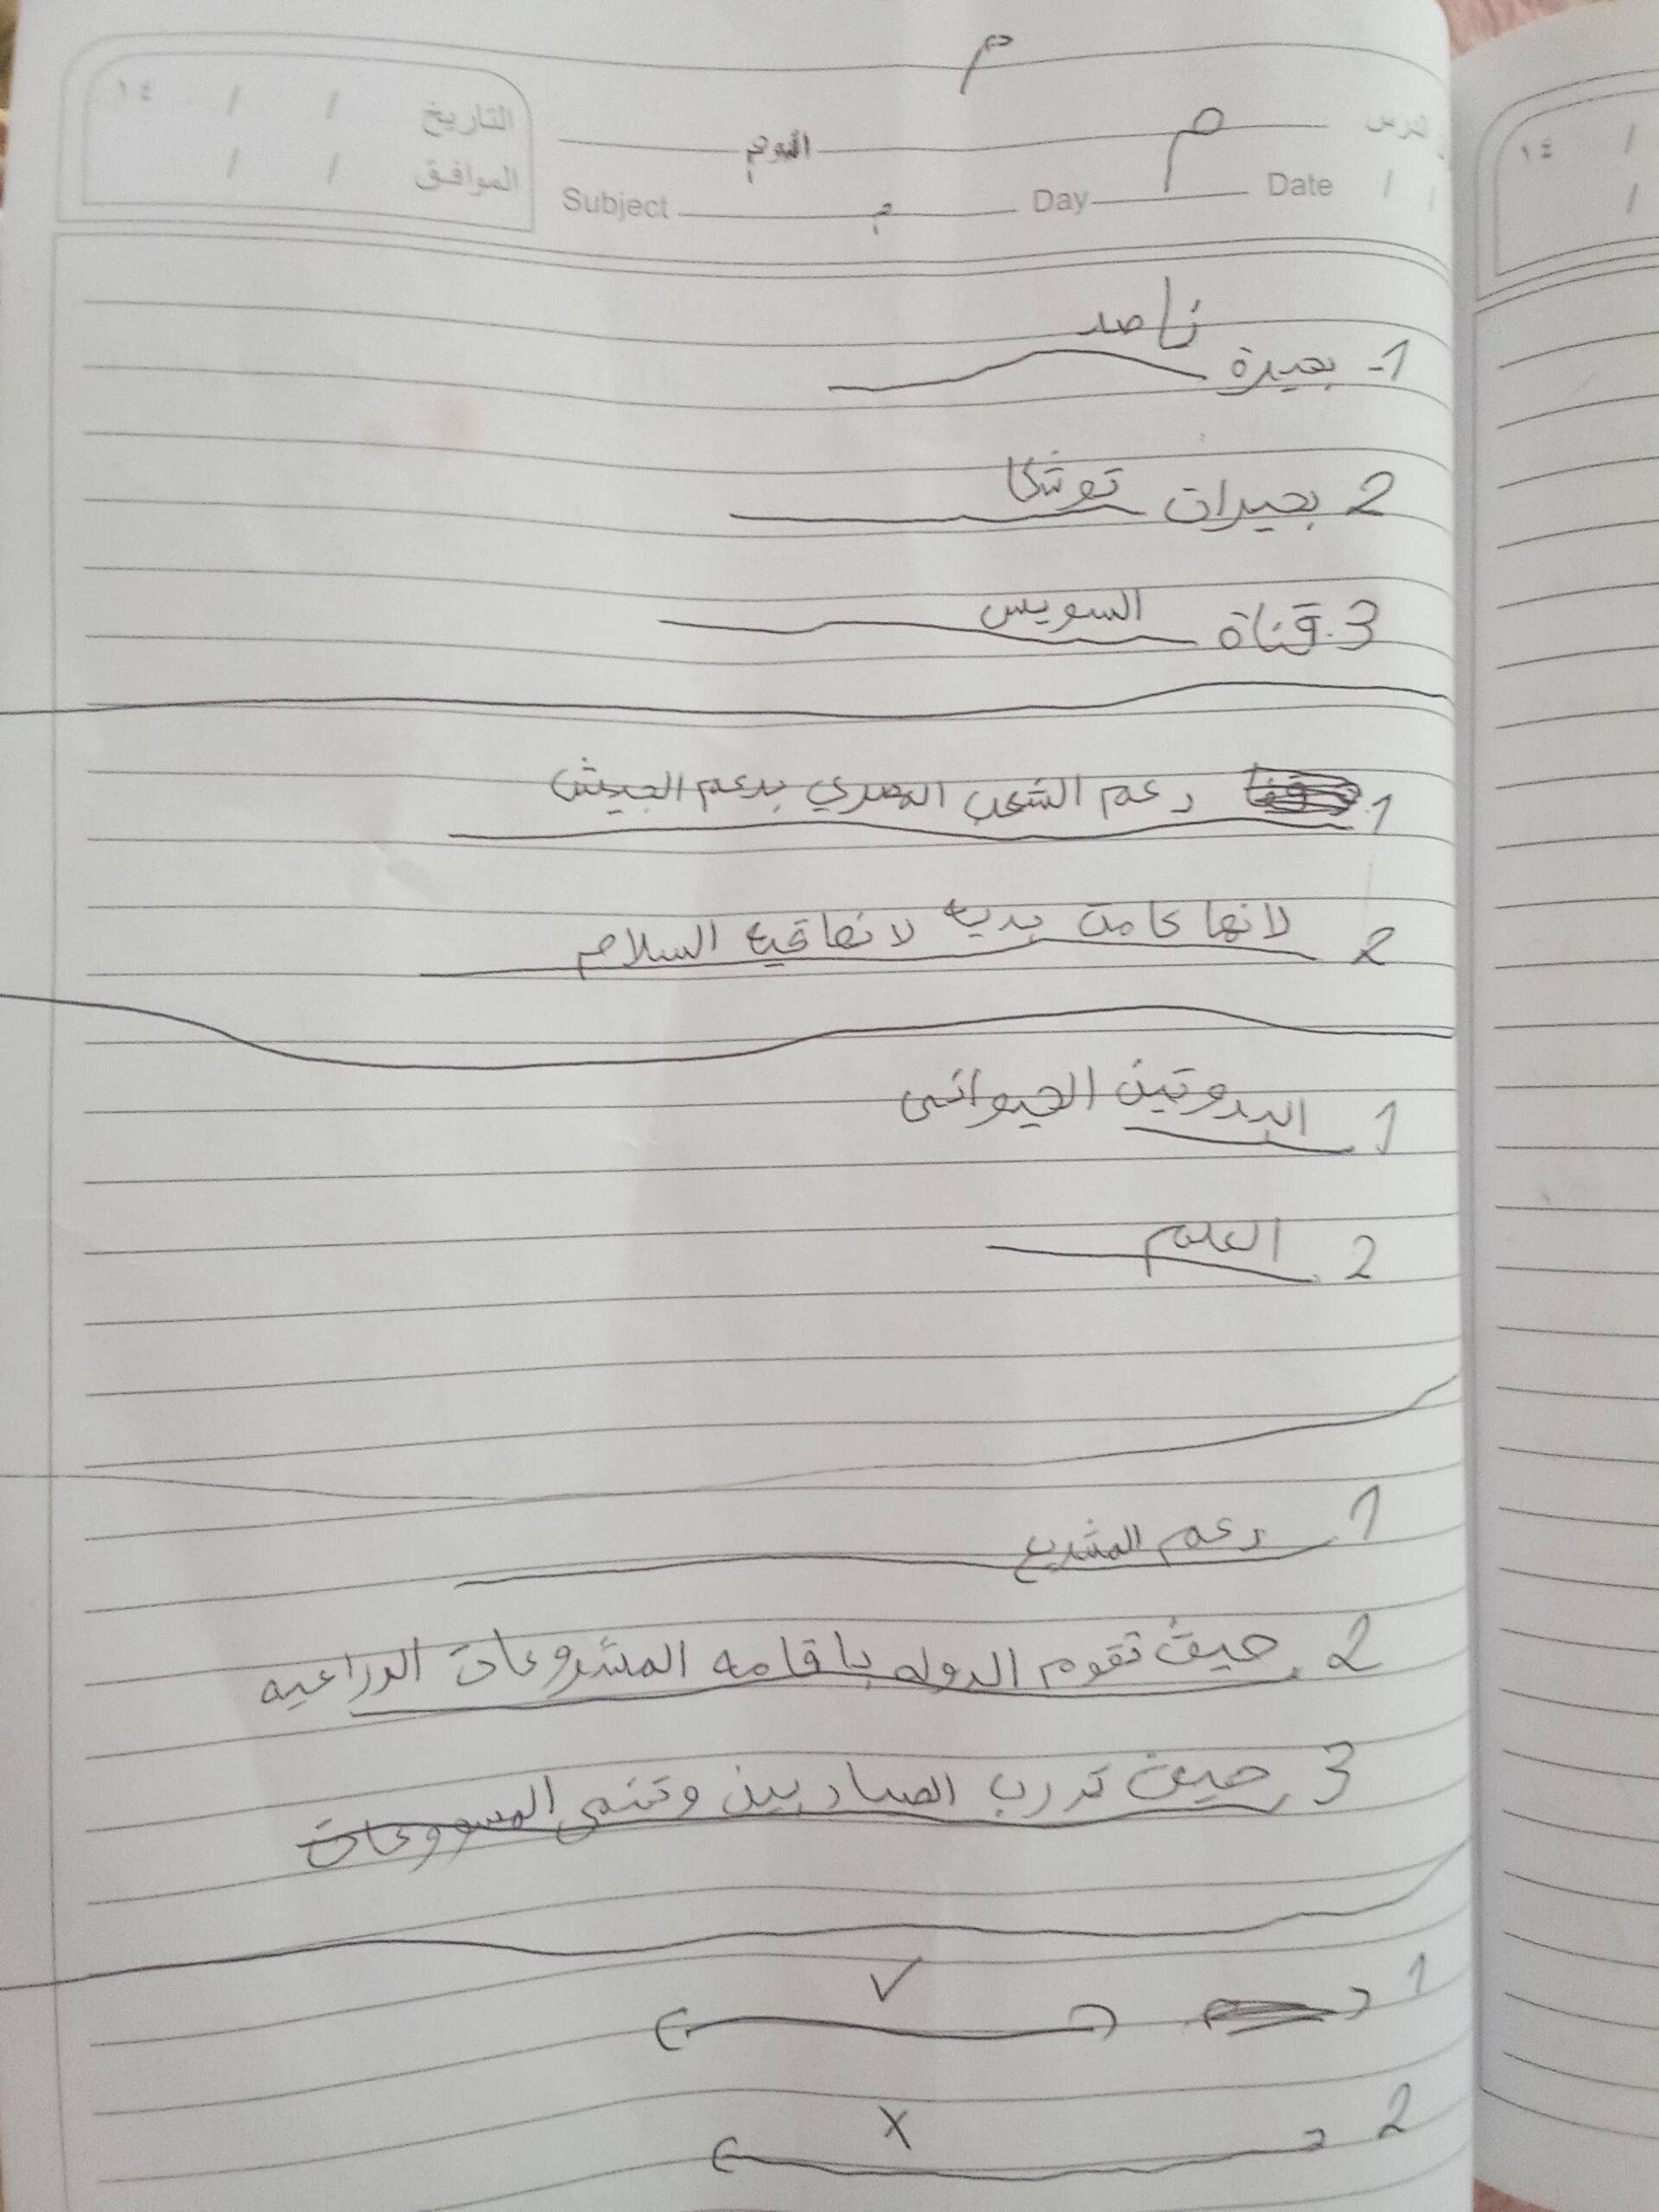 م
التاريخ / / ١٤
اليوم م
الدرس
الموافق / /
Subject م Day Date / /
ناصر
1- بحيرة
2 بحيرات توشكا
3. قناة السويس
1. دعم الشعب المصري بدعم الجيش
2 لانها كامت بديه لاتفاقيه السلام
1 البروتين الحيوانى
2. العلم
1 دعم المشريع
2. حيث تقوم الدوله باقامه المشروعات الزراعيه
3. حيث تدرب الصيادين وتنمى
1 ( ✓ )
2 ( X )
١٤ /
/